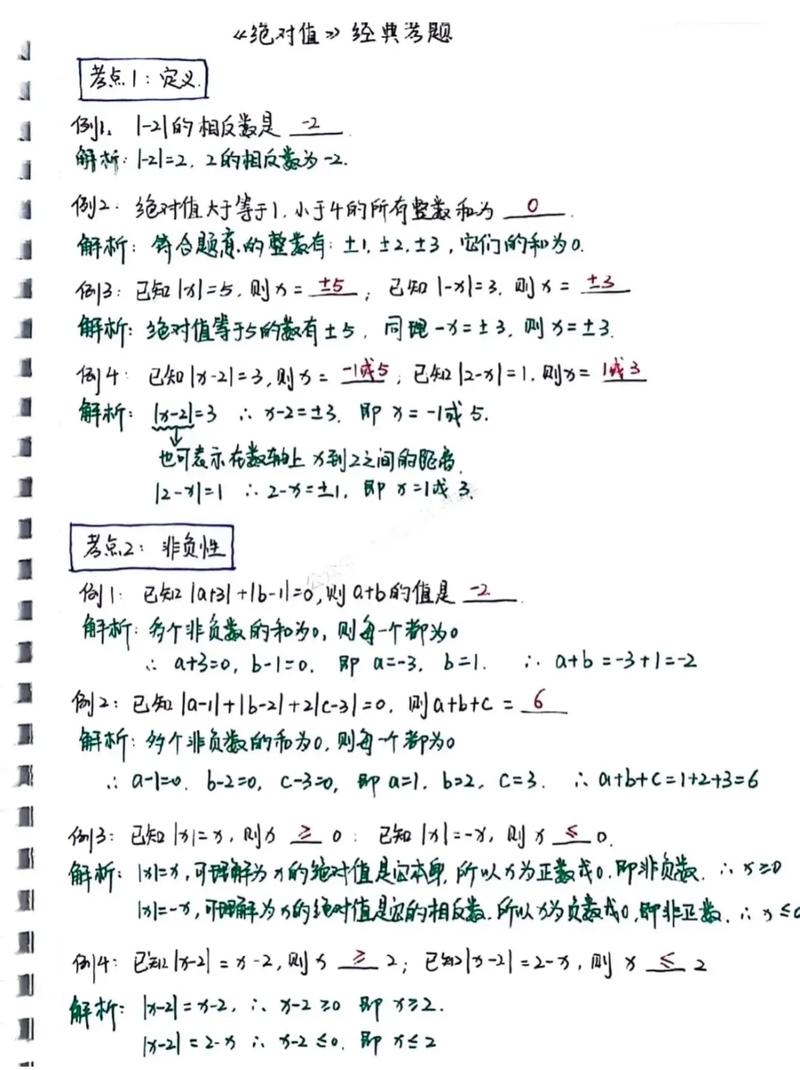 《绝对值》经典考题
考点1:定义
例1、|-2|的相反数是 -2 .
解析:|-2|=2, 2的相反数为-2.
例2:绝对值大于等于1,小于4的所有整数和为 0 .
解析:符合题意的整数有:±1,±2,±3,它们的和为0.
例3:已知|x|=5,则x= ±5 ;已知|-x|=3,则x= ±3
解析:绝对值等于5的数有±5,同理-x=±3,则x=±3.
例4:已知|x-2|=3,则x= -1或5 ;已知|2-x|=1,则x= 1或3
解析:|x-2|=3 ∴x-2=±3,即x=-1或5.
也可表示在数轴上x到2之间的距离.
|2-x|=1 ∴2-x=±1,即x=1或3.
考点2:非负性
例1:已知|a+3|+|b-1|=0,则a+b的值是 -2 .
解析:多个非负数的和为0,则每一个都为0
∴a+3=0, b-1=0, 即a=-3, b=1. ∴a+b=-3+1=-2
例2:已知|a-1|+|b-2|+2|c-3|=0,则a+b+c= 6
解析:多个非负数的和为0,则每一个都为0
∴a-1=0, b-2=0, c-3=0, 即a=1, b=2, c=3. ∴a+b+c=1+2+3=6
例3:已知|x|=x,则x ≥ 0;已知|x|=-x,则x ≤ 0.
解析:|x|=x,可理解为x的绝对值是它本身,所以x为正数或0,即非负数,∴x≥0
|x|=-x,可理解为x的绝对值是它的相反数,所以x为负数或0,即非正数,∴x≤0
例4:已知|x-2|=x-2,则x ≥ 2;已知|x-2|=2-x,则x ≤ 2
解析:|x-2|=x-2,∴x-2≥0 即x≥2.
|x-2|=2-x ∴x-2≤0,即x≤2